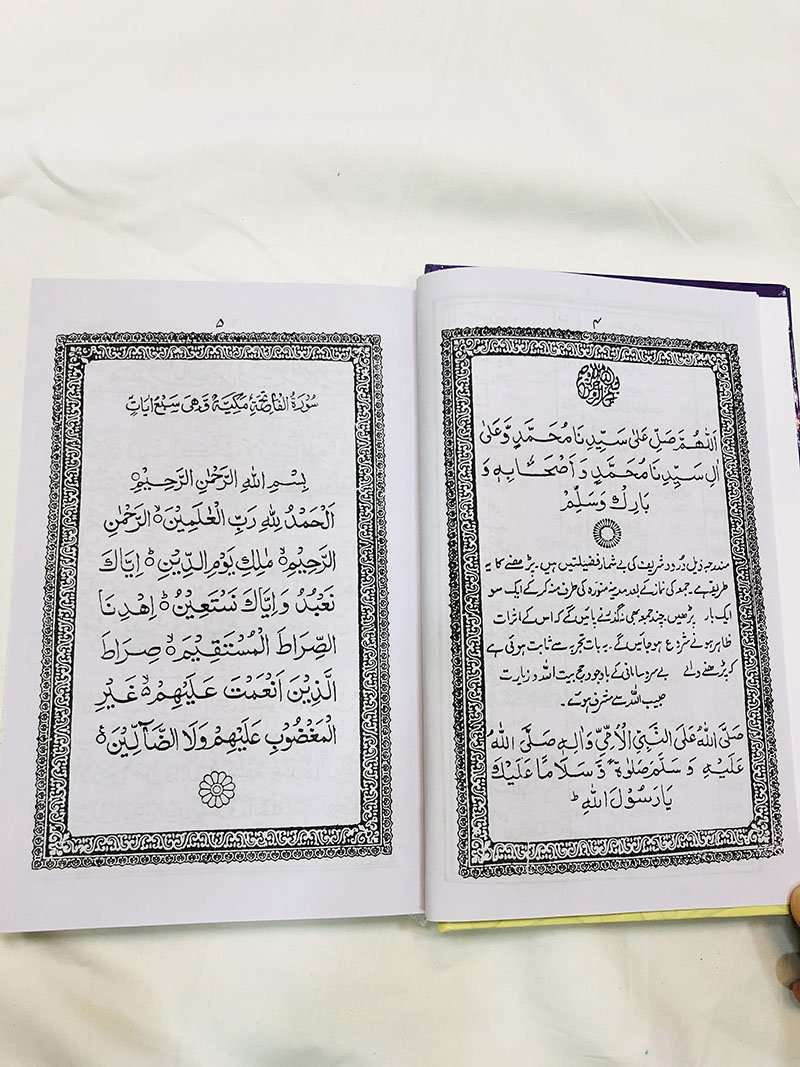 ۴
اَللّٰهُمَّ صَلِّ عَلٰى سَيِّدِنَا مُحَمَّدٍ وَّعَلٰى
اٰلِ سَيِّدِنَا مُحَمَّدٍ وَاَصْحَابِهٖ وَ
بَارِكْ وَسَلِّمْ
مندرجہ ذیل درود شریف کی بے شمار فضیلتیں ہیں۔ پڑھنے کا یہ
طریقہ ہے۔ جمعہ کی نماز کے بعد مدینہ منورہ کی طرف منہ کر کے ایک سو
ایک بار پڑھیں چند جمعہ بھی نہ گذرنے پائیں گے کہ اس کے اثرات
ظاہر ہونے شروع ہو جائیں گے۔ یہ بات تجربہ سے ثابت ہوئی ہے
کہ پڑھنے والے بے سروسامانی کے باوجود حج بیت اللہ و زیارت
حبیب اللہ سے مشرف ہوئے۔
صَلَّى اللهُ عَلَى النَّبِيِّ الْاُمِّيِّ وَاٰلِهٖ صَلَّى اللهُ
عَلَيْهِ وَسَلَّمَ صَلٰوةً وَّسَلَامًا عَلَيْكَ
يَارَسُوْلَ اللهِ ؕ
۵
سُوْرَةُ الْفَاتِحَةِ مَكِّيَّةٌ وَّهِىَ سَبْعُ اٰيَاتٍ
بِسْمِ اللهِ الرَّحْمٰنِ الرَّحِيْمِ
اَلْحَمْدُ لِلّٰهِ رَبِّ الْعٰلَمِيْنَ ۙ الرَّحْمٰنِ
الرَّحِيْمِ ۙ مٰلِكِ يَوْمِ الدِّيْنِ ؕ اِيَّاكَ
نَعْبُدُ وَاِيَّاكَ نَسْتَعِيْنُ ؕ اِهْدِنَا
الصِّرَاطَ الْمُسْتَقِيْمَ ۙ صِرَاطَ
الَّذِيْنَ اَنْعَمْتَ عَلَيْهِمْ ۙ غَيْرِ
الْمَغْضُوْبِ عَلَيْهِمْ وَلَا الضَّآلِّيْنَ